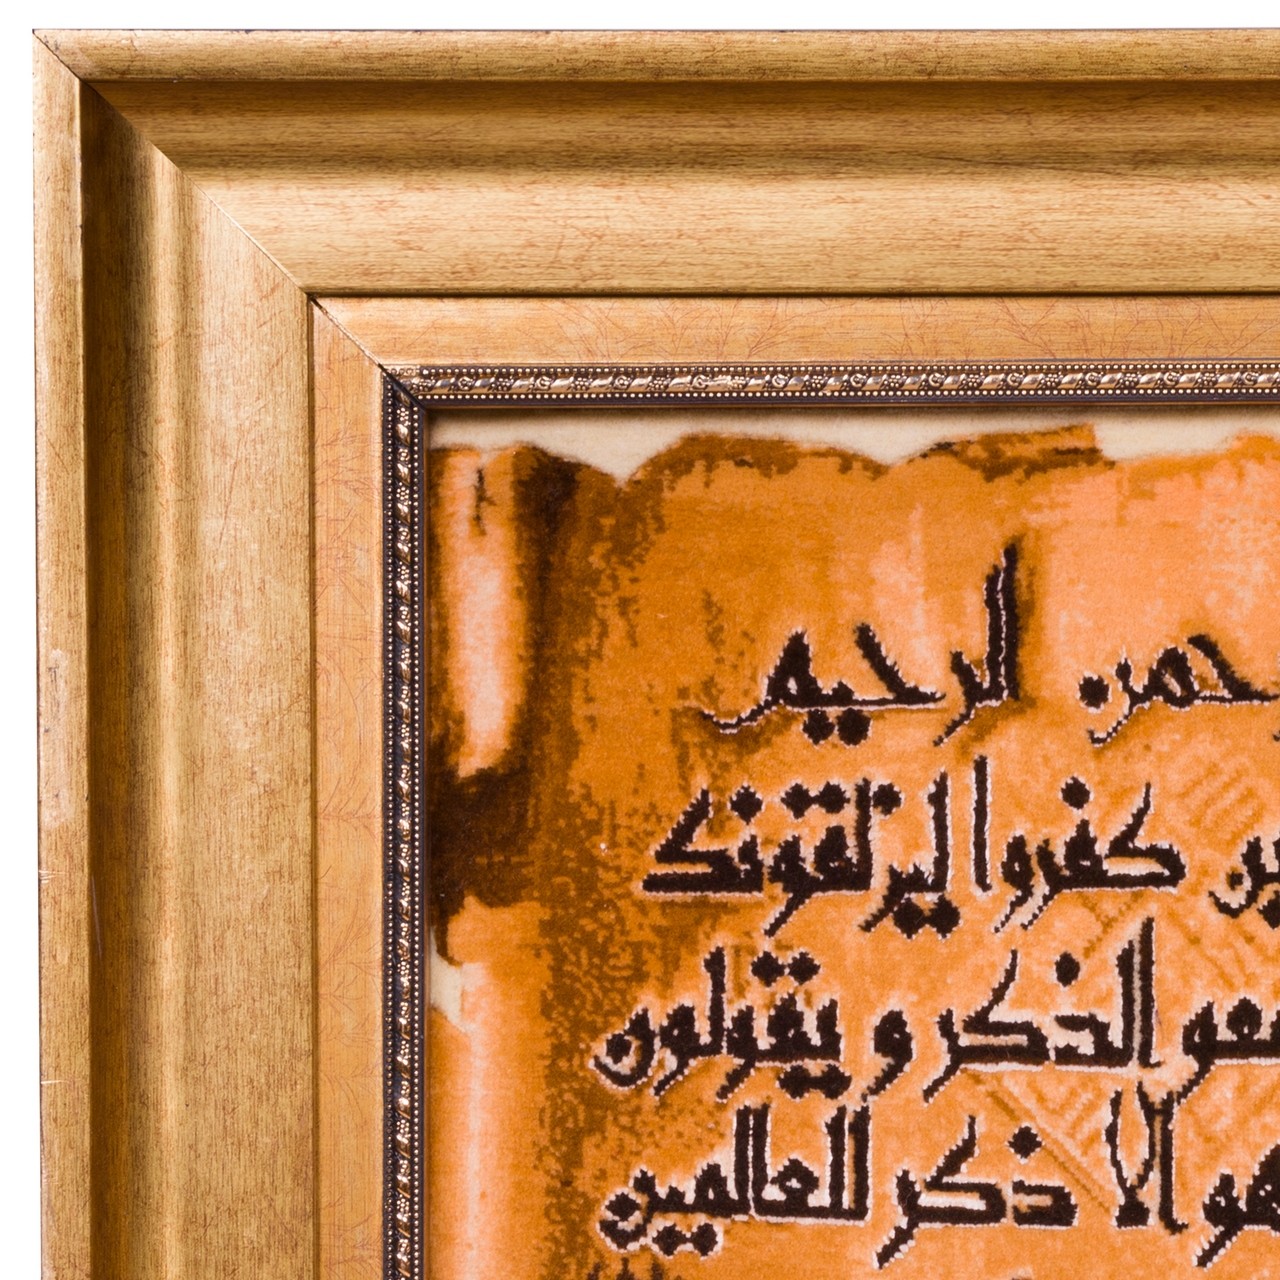 حمن الرحیم
ین کفروا لیزلقونک
معو الذکر و یقولون
هو الا ذکر للعالمین